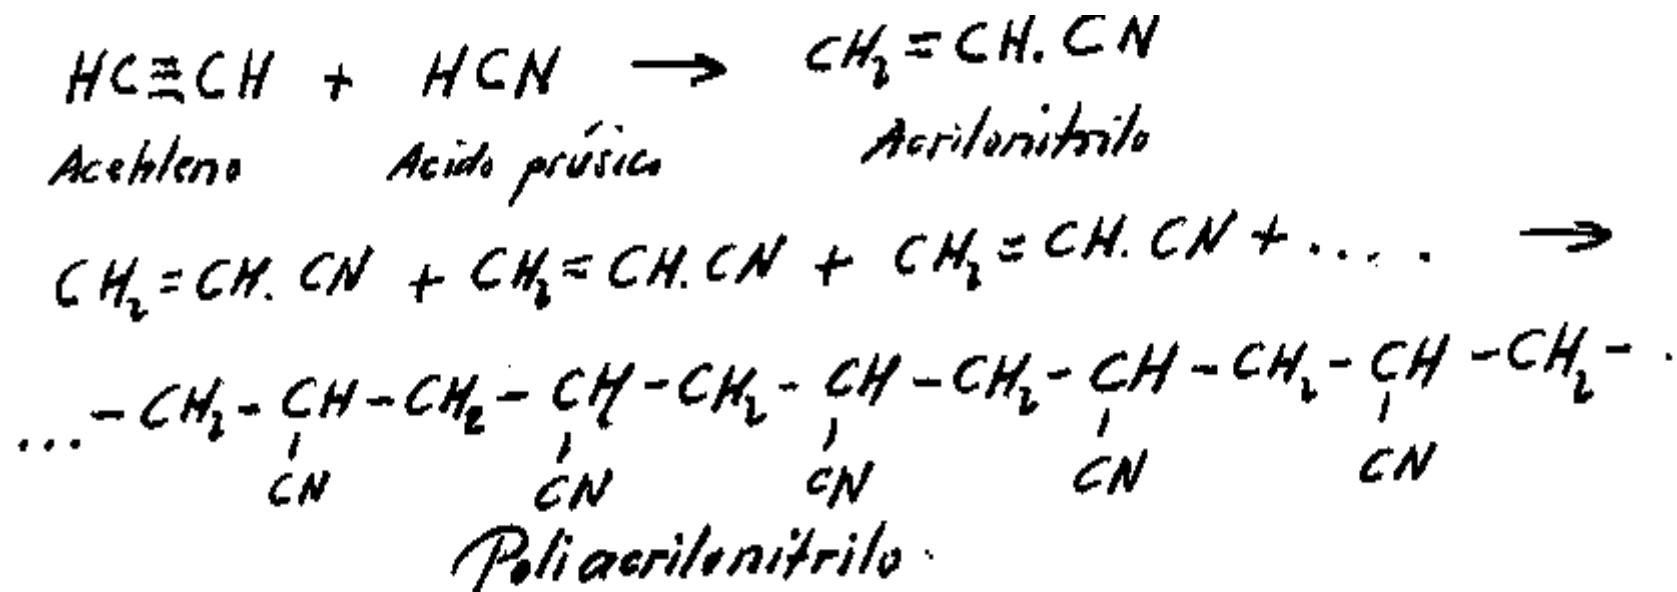 HC≡CH + HCN → CH₂=CH.CN
Acetileno Acido prúsico Acrilonitrilo
CH₂=CH.CN + CH₂=CH.CN + CH₂=CH.CN + .... →
...-CH₂-CH-CH₂-CH-CH₂-CH-CH₂-CH-CH₂-CH-CH₂-.
CN CN CN CN CN
Poliacrilonitrilo.